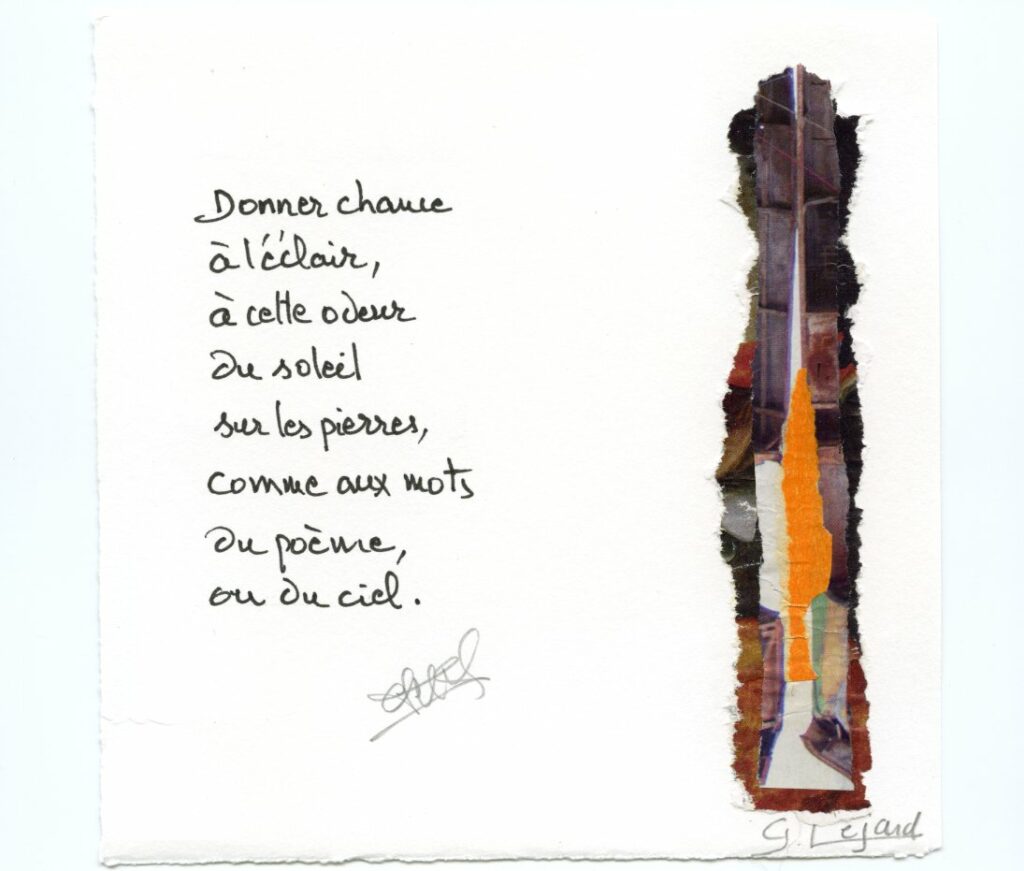 Donner chance
à l'éclair,
à cette odeur
du soleil
sur les pierres,
comme aux mots
du poème,
ou du ciel.
G. Lejard